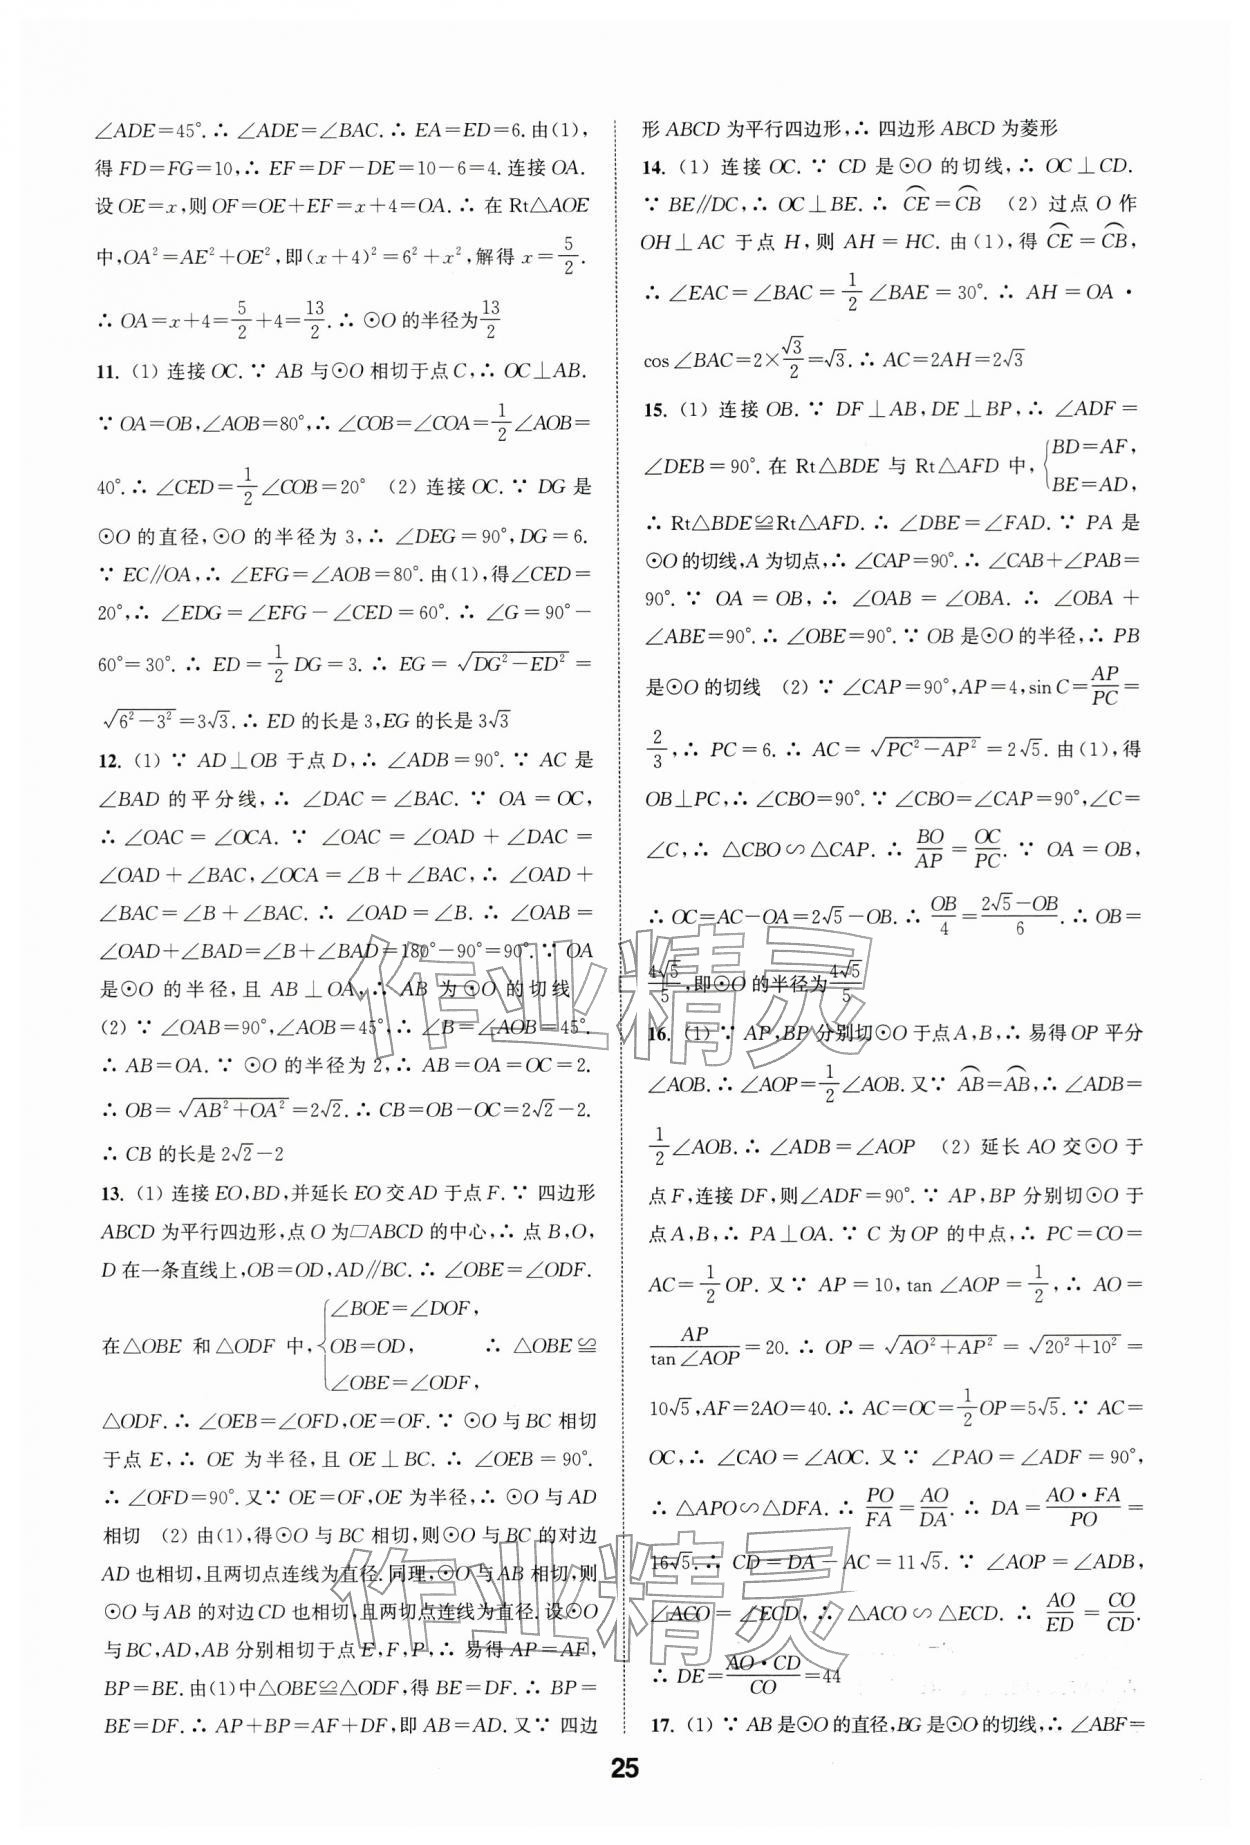 ∠ADE=45°.∴ ∠ADE=∠BAC.∴ EA=ED=6.由(1),
得 FD=FG=10,∴ EF=DF-DE=10-6=4.连接OA.
设OE=x,则OF=OE+EF=x+4=OA.∴ 在 Rt△AOE
中,OA²=AE²+OE²,即(x+4)²=6²+x²,解得 x=5/2.
∴ OA=x+4=5/2+4=13/2.∴ ⊙O的半径为13/2
11. (1) 连接OC.∵ AB 与⊙O 相切于点C,∴ OC⊥AB.
∵ OA=OB,∠AOB=80°,∴ ∠COB=∠COA=1/2∠AOB=
40°.∴ ∠CED=1/2∠COB=20° (2) 连接OC.∵ DG 是
⊙O 的直径,⊙O 的半径为 3,∴ ∠DEG=90°,DG=6.
∵ EC∥OA,∴ ∠EFG=∠AOB=80°.由(1),得∠CED=
20°,∴ ∠EDG=∠EFG-∠CED=60°.∴ ∠G=90°-
60°=30°.∴ ED=1/2DG=3.∴ EG=√(DG²-ED²)=
√(6²-3²)=3√3.∴ ED 的长是 3,EG的长是 3√3
12. (1) ∵ AD⊥OB 于点 D,∴ ∠ADB=90°.∵ AC 是
∠BAD 的平分线,∴ ∠DAC=∠BAC.∵ OA=OC,
∴ ∠OAC=∠OCA.∵ ∠OAC=∠OAD+∠DAC=
∠OAD+∠BAC,∠OCA=∠B+∠BAC,∴ ∠OAD+
∠BAC=∠B+∠BAC.∴ ∠OAD=∠B.∴ ∠OAB=
∠OAD+∠BAD=∠B+∠BAD=180°-90°=90°.∵ OA
是⊙O 的半径,且 AB⊥OA,∴ AB 为⊙O 的切线
(2) ∵ ∠OAB=90°,∠AOB=45°,∴ ∠B=∠AOB=45°.
∴ AB=OA.∵ ⊙O 的半径为 2,∴ AB=OA=OC=2.
∴ OB=√(AB²+OA²)=2√2.∴ CB=OB-OC=2√2-2.
∴ CB 的长是 2√2-2
13. (1) 连接 EO,BD,并延长 EO 交 AD 于点 F.∵ 四边形
ABCD 为平行四边形,点 O 为□ABCD 的中心,∴ 点 B,O,
D 在一条直线上,OB=OD,AD∥BC.∴ ∠OBE=∠ODF.
在△OBE 和△ODF 中,{∠BOE=∠DOF,
OB=OD, ∴ △OBE≌
∠OBE=∠ODF,
△ODF.∴ ∠OEB=∠OFD,OE=OF.∵ ⊙O 与 BC 相切
于点 E,∴ OE 为半径,且 OE⊥BC.∴ ∠OEB=90°.
∴ ∠OFD=90°.又∵ OE=OF,OE 为半径,∴ ⊙O 与 AD
相切 (2) 由(1),得⊙O 与 BC 相切,则⊙O 与 BC 的对边
AD 也相切,且两切点连线为直径.同理,⊙O 与 AB 相切,则
⊙O 与 AB 的对边 CD 也相切,且两切点连线为直径.设⊙O
与 BC,AD,AB 分别相切于点 E,F,P,∴ 易得 AP=AF,
BP=BE.由(1)中△OBE≌△ODF,得 BE=DF.∴ BP=
BE=DF.∴ AP+BP=AF+DF,即 AB=AD.又∵ 四边
形 ABCD 为平行四边形,∴ 四边形 ABCD 为菱形
14. (1) 连接 OC.∵ CD 是⊙O 的切线,∴ OC⊥CD.
∵ BE∥DC,∴ OC⊥BE.∴ ⌒CE=⌒CB (2) 过点 O 作
OH⊥AC 于点 H,则 AH=HC.由(1),得 ⌒CE=⌒CB,
∴ ∠EAC=∠BAC=1/2∠BAE=30°.∴ AH=OA·
cos∠BAC=2×√3/2=√3.∴ AC=2AH=2√3
15. (1) 连接 OB.∵ DF⊥AB,DE⊥BP,∴ ∠ADF=
∠DEB=90°.在 Rt△BDE 与 Rt△AFD 中,{BD=AF,
BE=AD,
∴ Rt△BDE≌Rt△AFD.∴ ∠DBE=∠FAD.∵ PA 是
⊙O 的切线,A 为切点,∴ ∠CAP=90°.∴ ∠CAB+∠PAB=
90°.∵ OA=OB,∴ ∠OAB=∠OBA.∴ ∠OBA+
∠ABE=90°.∴ ∠OBE=90°.∵ OB 是⊙O 的半径,∴ PB
是⊙O 的切线 (2) ∵ ∠CAP=90°,AP=4,sin C=AP/PC=
2/3,∴ PC=6.∴ AC=√(PC²-AP²)=2√5.由(1),得
OB⊥PC,∴ ∠CBO=90°.∵ ∠CBO=∠CAP=90°,∠C=
∠C,∴ △CBO∽△CAP.∴ BO/AP=OC/PC.∵ OA=OB,
∴ OC=AC-OA=2√5-OB.∴ OB/4=(2√5-OB)/6.∴ OB=
4√5/5,即⊙O 的半径为4√5/5
16. (1) ∵ AP,BP 分别切⊙O 于点 A,B,∴ 易得 OP 平分
∠AOB.∴ ∠AOP=1/2∠AOB.又∵ ⌒AB=⌒AB,∴ ∠ADB=
1/2∠AOB.∴ ∠ADB=∠AOP (2) 延长 AO 交⊙O 于
点 F,连接 DF,则∠ADF=90°.∵ AP,BP 分别切⊙O 于
点 A,B,∴ PA⊥OA.∵ C 为 OP 的中点,∴ PC=CO=
AC=1/2OP.又∵ AP=10,tan∠AOP=1/2,∴ AO=
AP/tan∠AOP=20.∴ OP=√(AO²+AP²)=√(20²+10²)=
10√5,AF=2AO=40.∴ AC=OC=1/2OP=5√5.∵ AC=
OC,∴ ∠CAO=∠AOC.又∵ ∠PAO=∠ADF=90°,
∴ △APO∽△DFA.∴ PO/FA=AO/DA.∴ DA=AO·FA/PO=
16√5.∴ CD=DA-AC=11√5.∵ ∠AOP=∠ADB,
∠ACO=∠ECD,∴ △ACO∽△ECD.∴ AO/ED=CO/CD.
∴ DE=AO·CD/CO=44
17. (1) ∵ AB 是⊙O 的直径,BG 是⊙O 的切线,∴ ∠ABF=
25
作业精灵
作业精灵